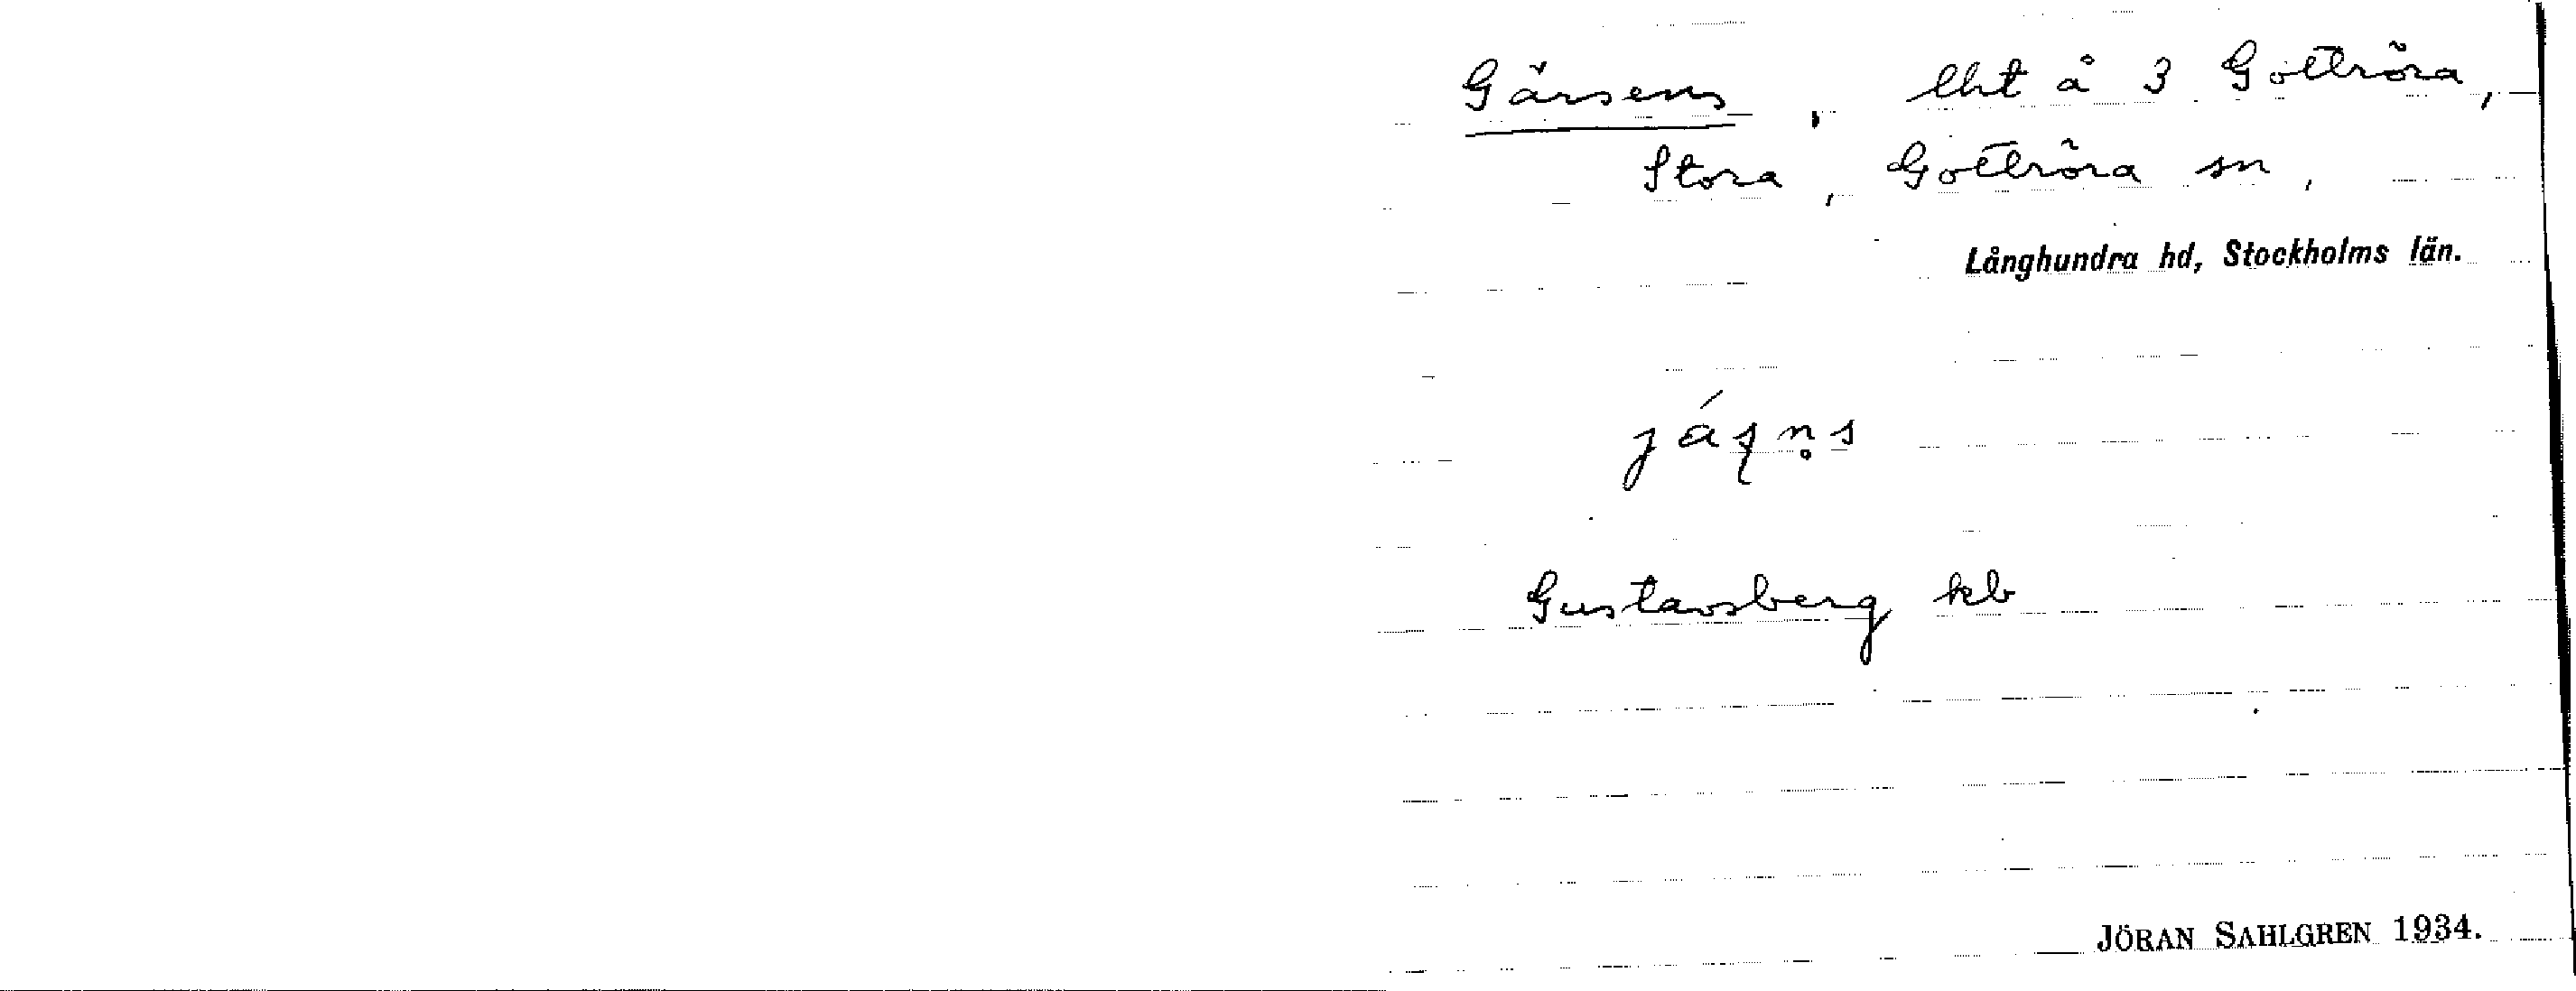 Gärsens, lht å 3 Gottröra,
Stora, Gottröra sn,
Långhundra hd, Stockholms län.
Gustavsberg kb
JÖRAN SAHLGREN 1934.